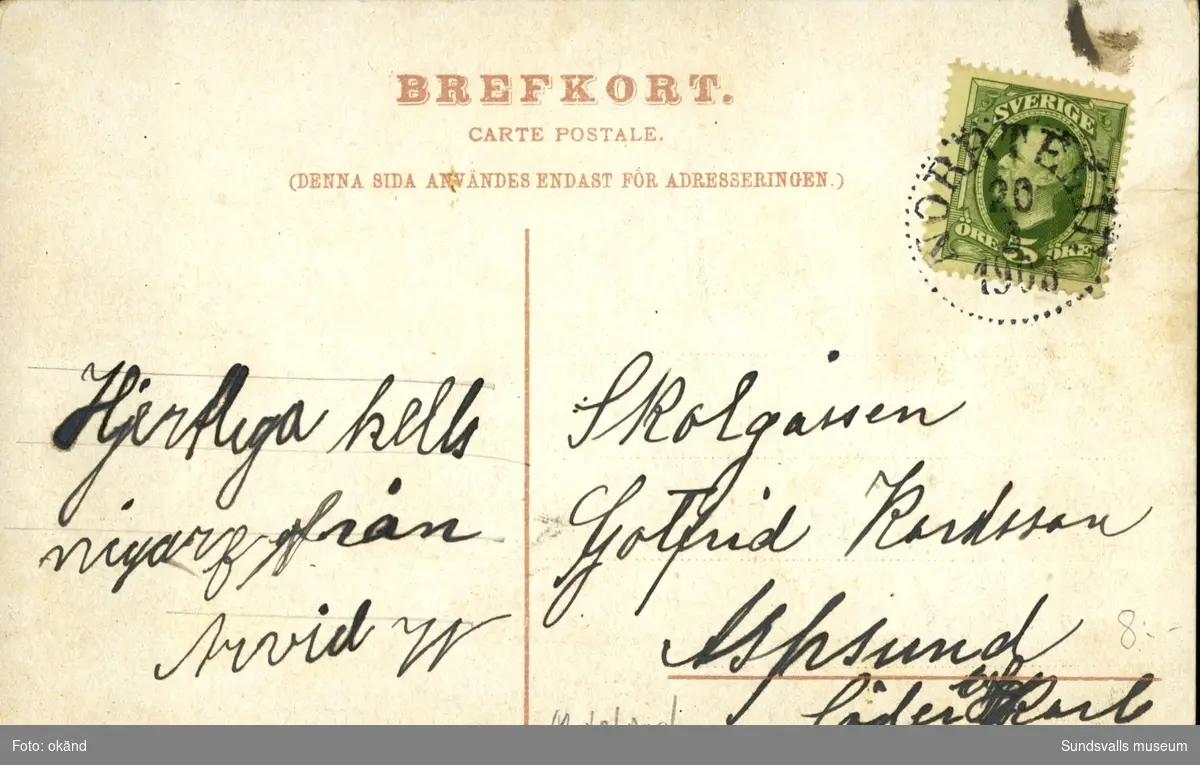 BREFKORT.
CARTE POSTALE.
(DENNA SIDA ANVÄNDES ENDAST FÖR ADRESSERINGEN.)
SVERIGE
NORRTELJE
20
ÖRE 5 ÖRE
Hjertliga hells
ningar från
Arvid W
Skolgåssen
Gotfrid Karlsson
Aspsund
Söder Karl
8:-
Foto: okänd
Sundsvalls museum